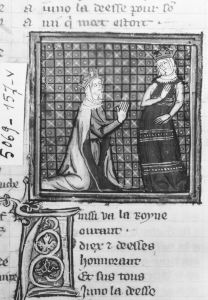 a iuno la deesse pour se
a ui q̃ mort estoit.
5069-157-v
Ainsi va la royne
ourant
Diex z deesses
honnorant
Et sus tous
Juno la deesse